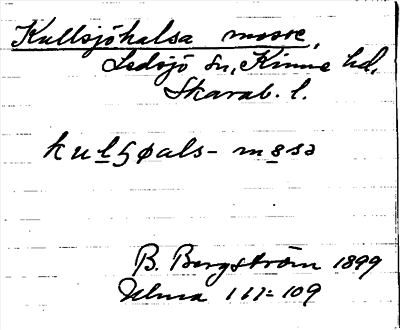 Kullsjöhalsa mosse,
Ledsjö sn, Kinne hd,
Skarab. l.
kulʂøals- mosa
B. Bergström 1899
Ulma 111:109